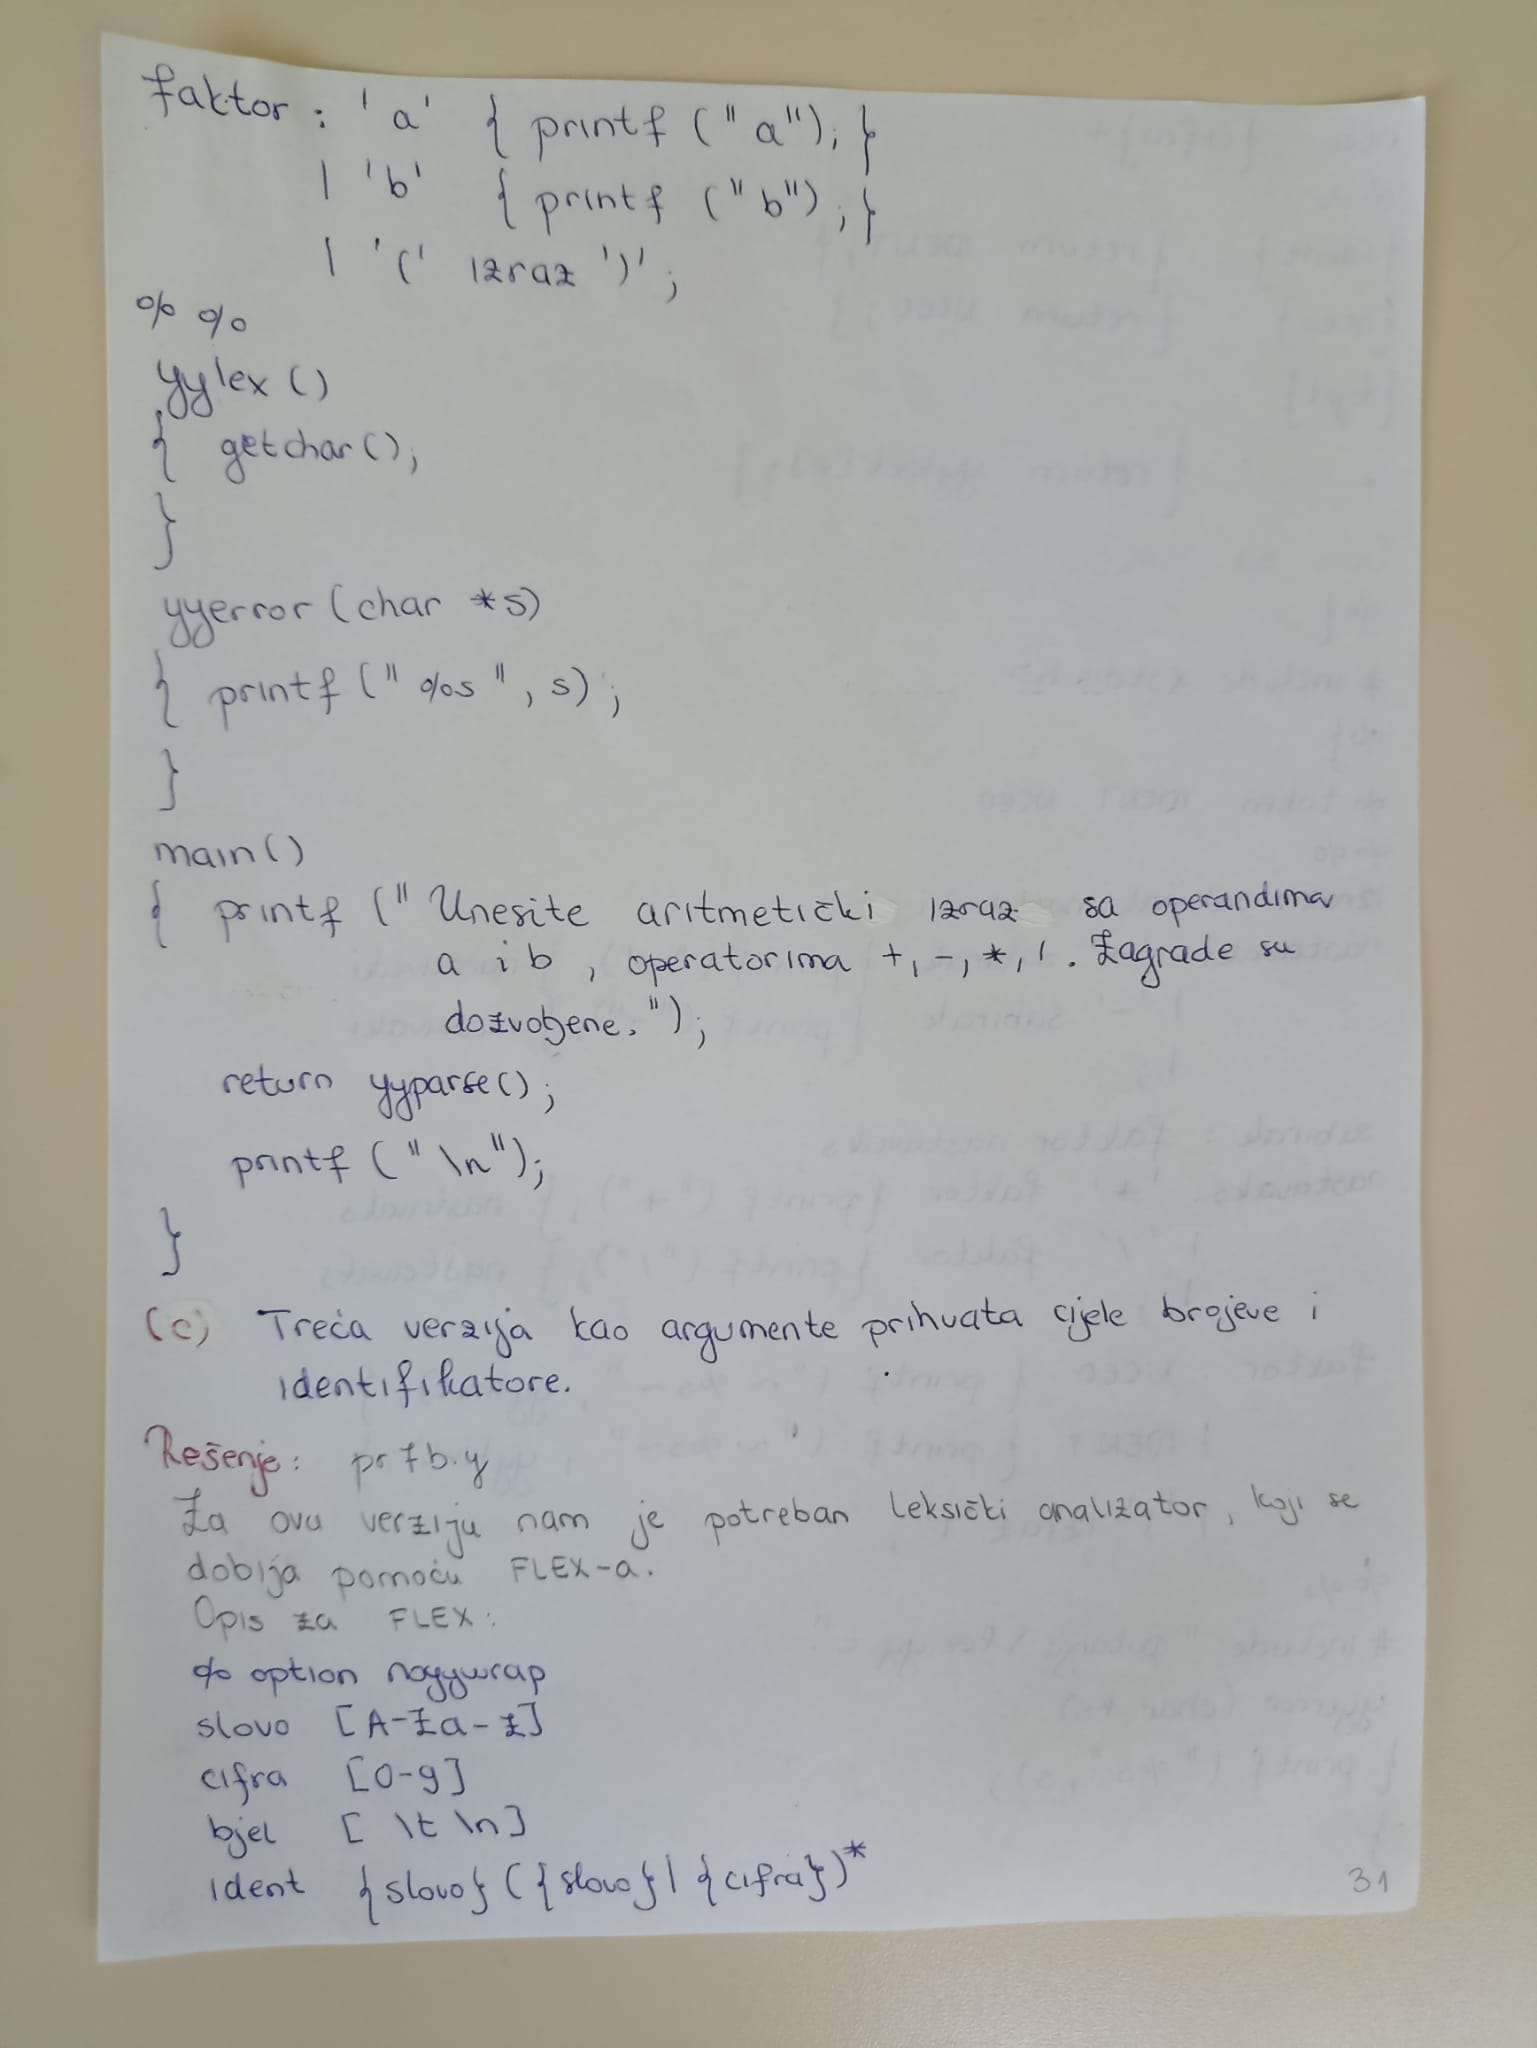 faktor : 'a' { printf ("a"); }
| 'b' { printf ("b"); }
| '(' izraz ')' ;
% %
yylex ()
{ getchar ();
}
yyerror (char *s)
{ printf (" %s ", s) ;
}
main ()
{ printf (" Unesite aritmetički izraz sa operandima
a i b , operatorima +, -, *, / . Zagrade su
dozvoljene. ");
return yyparse();
printf (" \n");
}
(c) Treća verzija kao argumente prihvata cijele brojeve i
identifikatore.
Rešenje: pr7b.y
Za ovu verziju nam je potreban leksički analizator, koji se
dobija pomoću FLEX-a.
Opis za FLEX:
% option noyywrap
slovo [A-Za-z]
cifra [0-9]
bjel [ \t \n]
ident {slovo} ({slovo} | {cifra})*
31